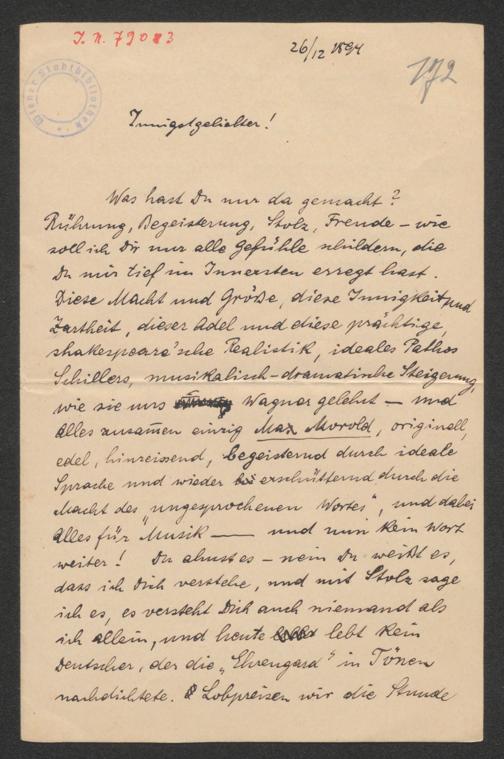 I. N. 79083
26/12 1894
172
Wiener Stadtbibliothek
Innigstgeliebter!
Was hast Du nur da gemacht?
Rührung, Begeisterung, Stolz, Freude – wie
soll ich Dir nur alle Gefühle schildern, die
Du mir tief im Innersten erregt hast.
Diese Macht und Größe, diese Innigkeit und
Zartheit, dieser Adel und diese prächtige,
shakespeare'sche Realistik, ideales Pathos
Schillers, musikalisch-dramatische Steigerung,
wie sie uns Wagner gelehrt – und
Alles zusam̅en einzig Max Morold, originell,
edel, hinreissend, begeisternd durch ideale
Sprache und wieder erschütternd durch die
Macht des "ungesprochenen Wortes", und dabei
Alles für "Musik — und nun kein Wort
weiter! Du ahnst es – nein Du weißt es,
dass ich Dich verstehe, und mit Stolz sage
ich es, es versteht Dich auch niemand als
ich allein, und heute lebt kein
Deutscher, der die „Ehrengard" in Tönen
nachdichtete. Lobpreisen wir die Stunde